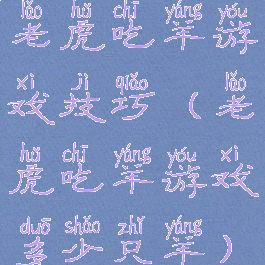 lǎo hǔ chī yáng yóu
老虎吃羊游
xì jì qiǎo lǎo
戏技巧（老
hǔ chī yáng yóu xì
虎吃羊游戏
duō shǎo zhǐ yáng
多少只羊）